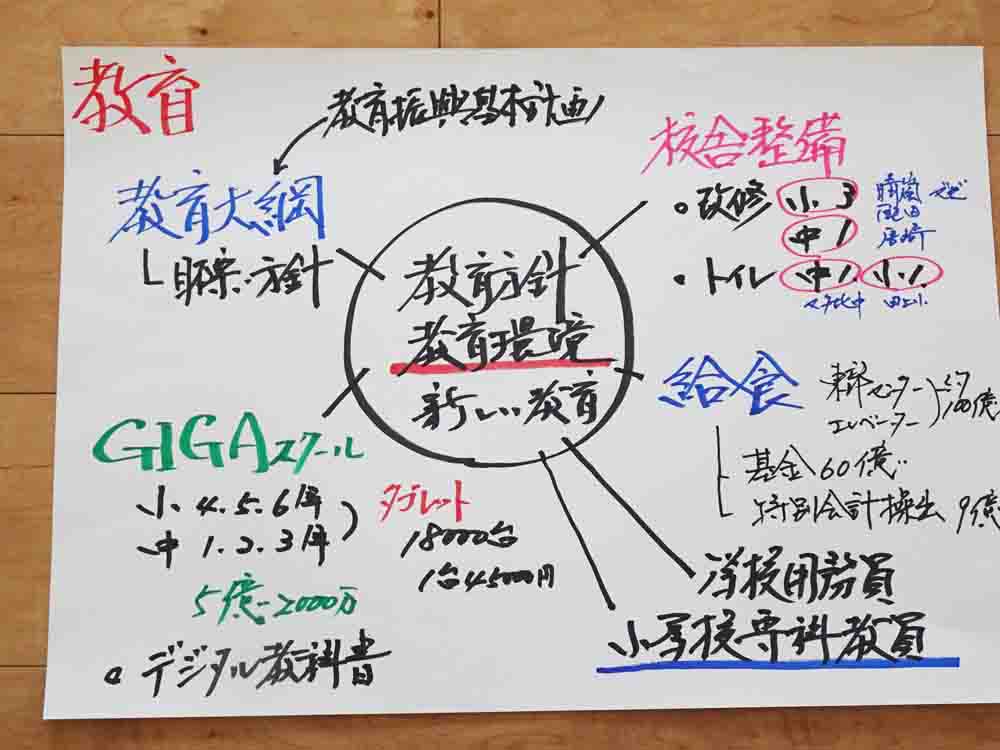 教育
教育振興基本計画
教育大綱
目標・方針
教育方針
教育環境
新しい教育
校舎整備
• 改修 小3
中1
晴嵐
唐崎
• トイレ 中1 小1
田上小
給食
東部センター
エレベーター
約100億
基金60億
特別会計繰出 9億
GIGAスクール
小 4.5.6年
中 1.2.3年
タブレット
18000台
1台45000円
5億2000万
• デジタル教科書
学校用務員
小学校専科教員